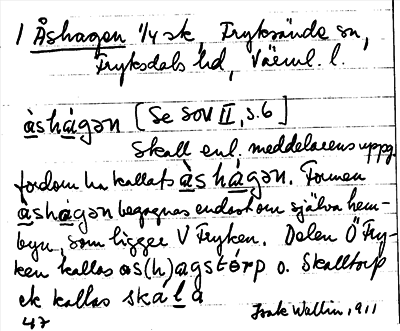 1 Åshagen 1/4 sk, Fryksände sn,
Fryksdals hd, Värml. l.
àshágən [Se SOV II, s. 6]
Skall enl. meddelarens uppg.
fordom ha kallats às hágən. Formen
àshágən begagnas endast om själva hem-
byn, som ligger V Fryken. Delen Ö Fry-
ken kallas as(h)agstórp o. Skalltorp
ek kallas skála
47 Isak Wallin, 1911